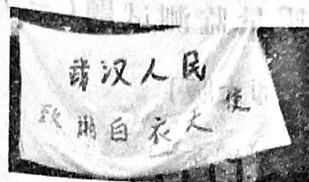 武汉人民
致谢白衣天使